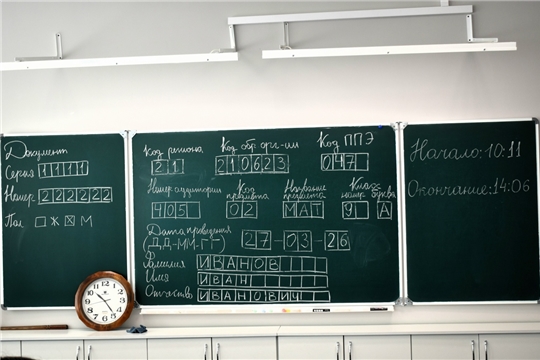 Документ
Серия 1111
Номер 222222
Пол Ж М
Код региона Код обр. орг-ии Код ППЭ
21 210623 047
Номер аудитории Код предмета Название предмета Класс номер буква
405 02 МАТ 9 А
Дата проведения
(ДД-ММ-ГГ) 27-03-26
Фамилия ИВАНОВ
Имя ИВАН
Отчество ИВАНОВИЧ
Начало: 10:11
Окончание: 14:06